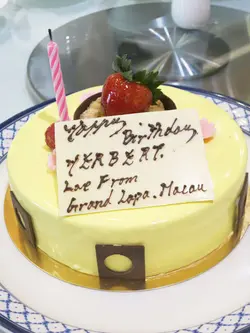 Happy
Birthday
HERBERT.
Love From
Grand Lapa. Macau